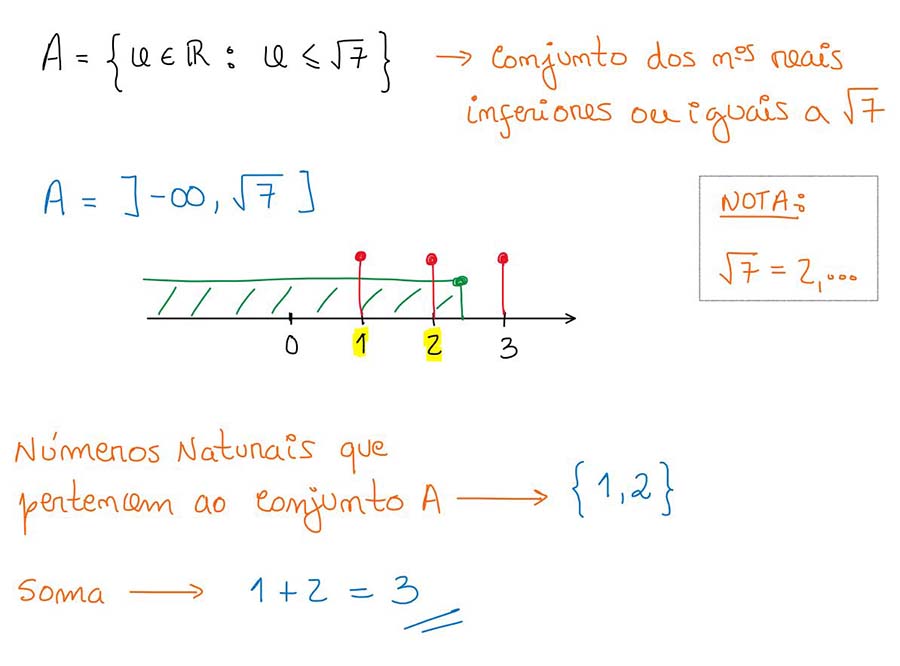 A = { x ∈ ℝ : x ≤ √7 } → Conjunto dos nºs reais
inferiores ou iguais a √7
A = ]-∞, √7 ]
NOTA:
√7 = 2,...
0 1 2 3
Números Naturais que
pertencem ao conjunto A → {1,2}
Soma → 1 + 2 = 3